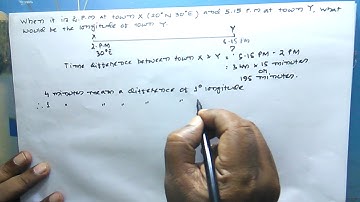 When it is 2.P.M at town X (20°N 30°E) and 5.15 P.M at town Y, what
would be the longitude of town Y
X Y
2.P.M 5.15 P.M
30°E ?
Time difference between town X & Y = 5.15 PM - 2 PM
= 3 hrs & 15 minutes
or
195 minutes.
4 minutes mean a difference of 1° longitude
∴ 1 " " " " "